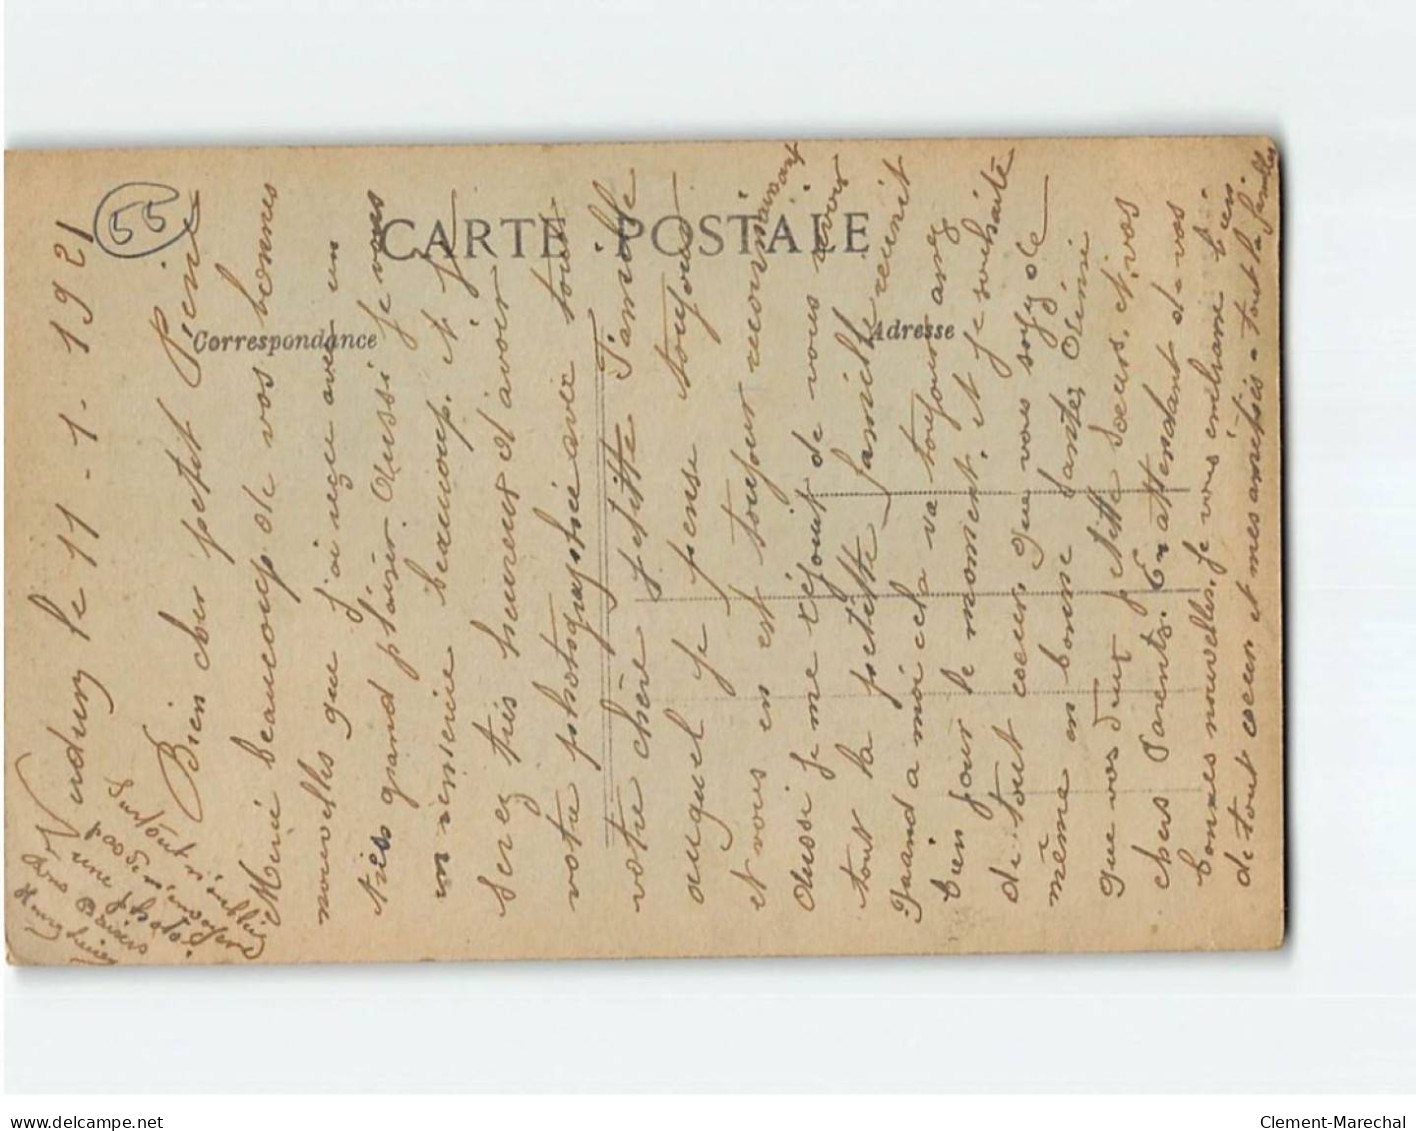 55
CARTE POSTALE
Correspondance
Adresse
Verdun le 11 - 1 - 1921
Bien cher petit
Merci beaucoup de vos bonnes
nouvelles que j'ai reçe avec un
très grand plaisir. Aussi je vous
en remercie beaucoup. et
serez très heureux d'avoir
votre photographie avec toute
votre chère petitte Famille
auquel je pense toujours
et vous en est toujour reconnaissant
Aussi je me réjouit de vous revoir
tout la petitte famille réunit
Quand a moi cela va toujour assez
bien pour le moment. et je souhaite
de tout coeur que vous soyez de
même en bonne santez
que vos deux petitte Soeurs. et vos
chers Parents. En attendant de vos
bonnes nouvelles. Je vous embrasse bien
de tout coeur et mes amitiés a tout la famille
Surtout n'oubliez
pas de m'envoyer
une photo.
Bons Baisers
Henry
Clement-Marechal
www.delcampe.net